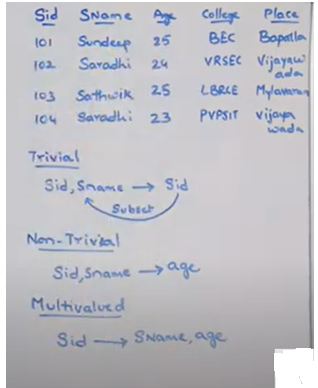 Sid SName Age College Place
101 Sundeep 25 BEC Bapatla
102 Saradhi 24 VRSEC Vijayaw
ada
103 Sathwik 25 LBRCE Mylavaram
104 Saradhi 23 PVPSIT vijaya
wada
Trivial
Sid, Sname → Sid
Subset
Non-Trivial
Sid, Sname → age
Multivalued
Sid → SName, age